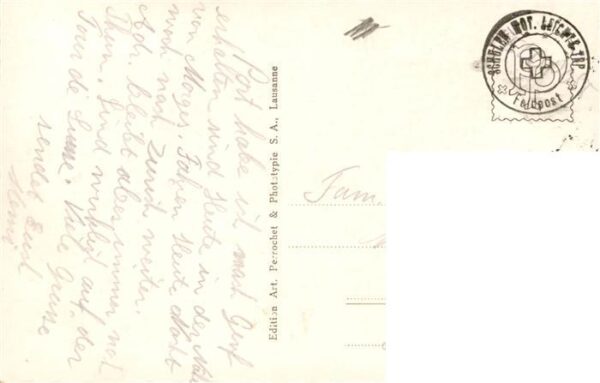 Post habe ich nach Genf
erhalten sind Heute in der Nähe
von Morges. Fahren Heute Nacht
noch nach Zürich weiter.
Adr. bleibt aber immer mot
Thun. Sind wirklich auf der
Tour de Suisse. Viele Grüsse
sendet Euch
Edition Art. Perrochet & Phototypie S. A., Lausanne
Feldpost
Fam.